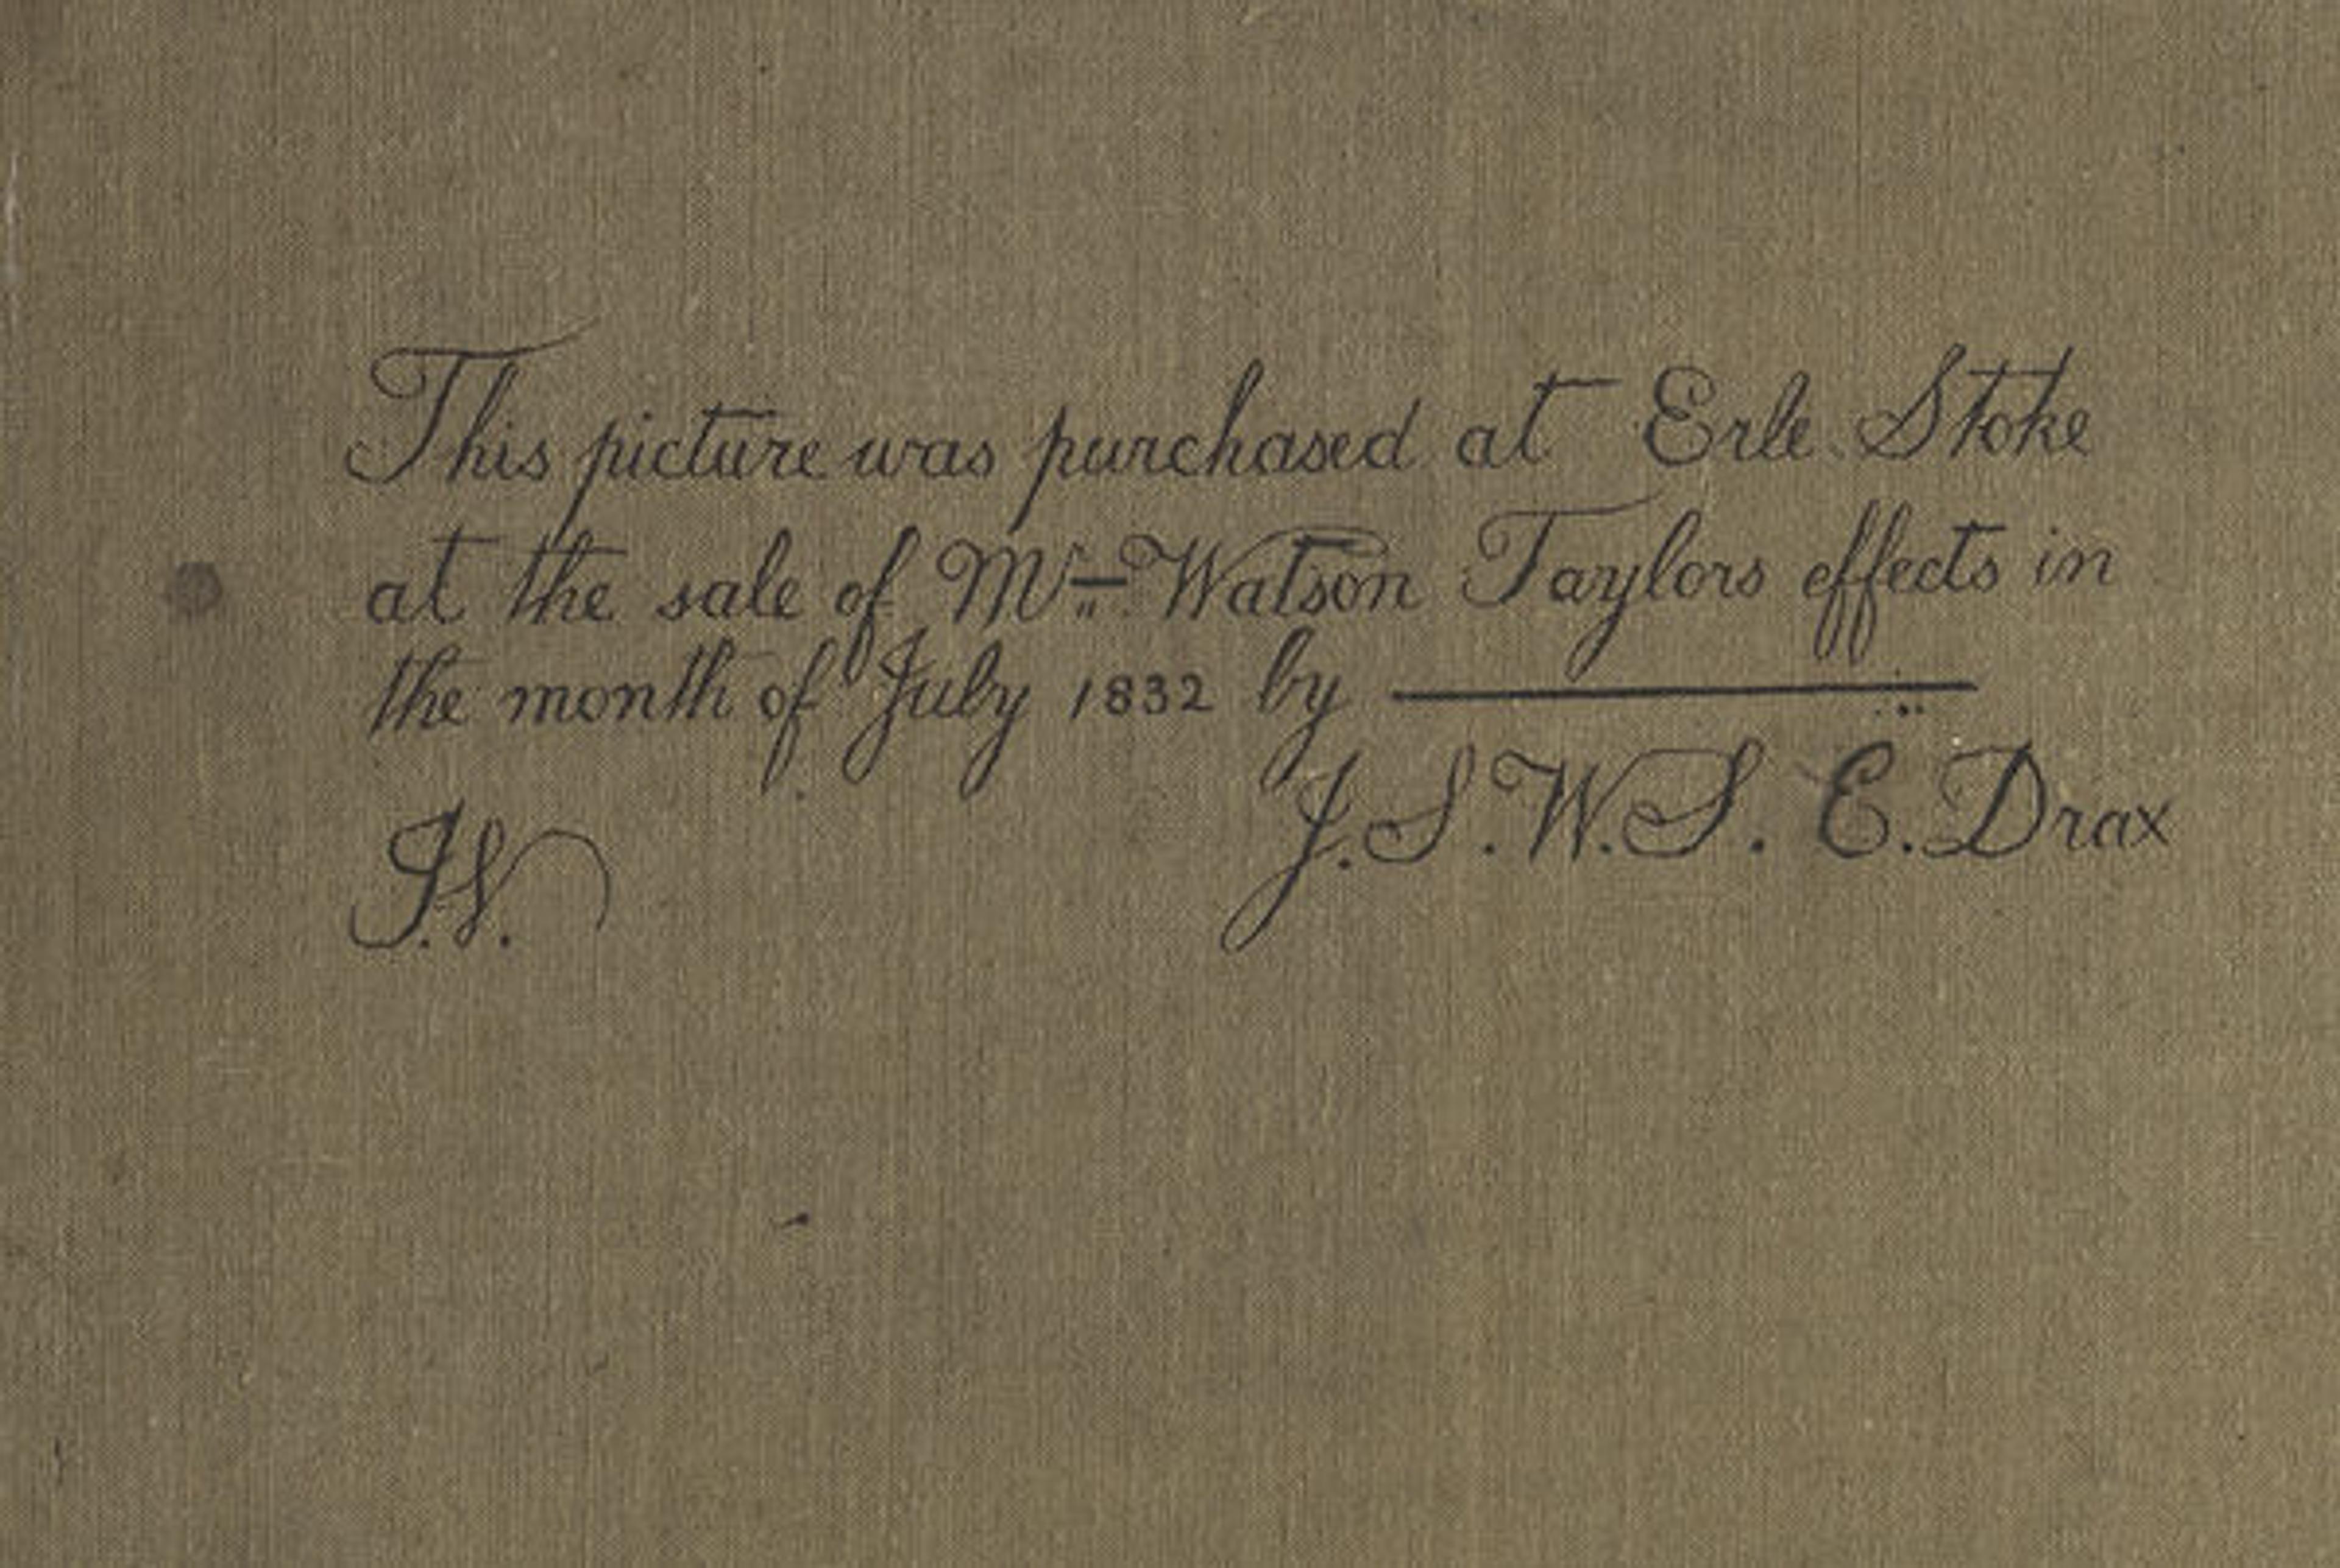 This picture was purchased at Erle Stoke
at the sale of Mr Watson Taylors effects in
the month of July 1832 by
J.S.W.S. E. Drax